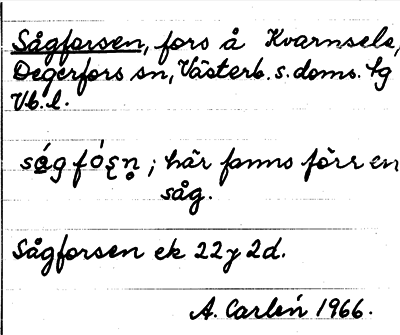 Sågforsen, fors å Kvarnsele,
Degerfors sn, Västerb. s. doms. tg
Vb. l.
sågfósn̥; här fanns förr en
såg.
Sågforsen ek 22 y 2d.
A. Carlén 1966.